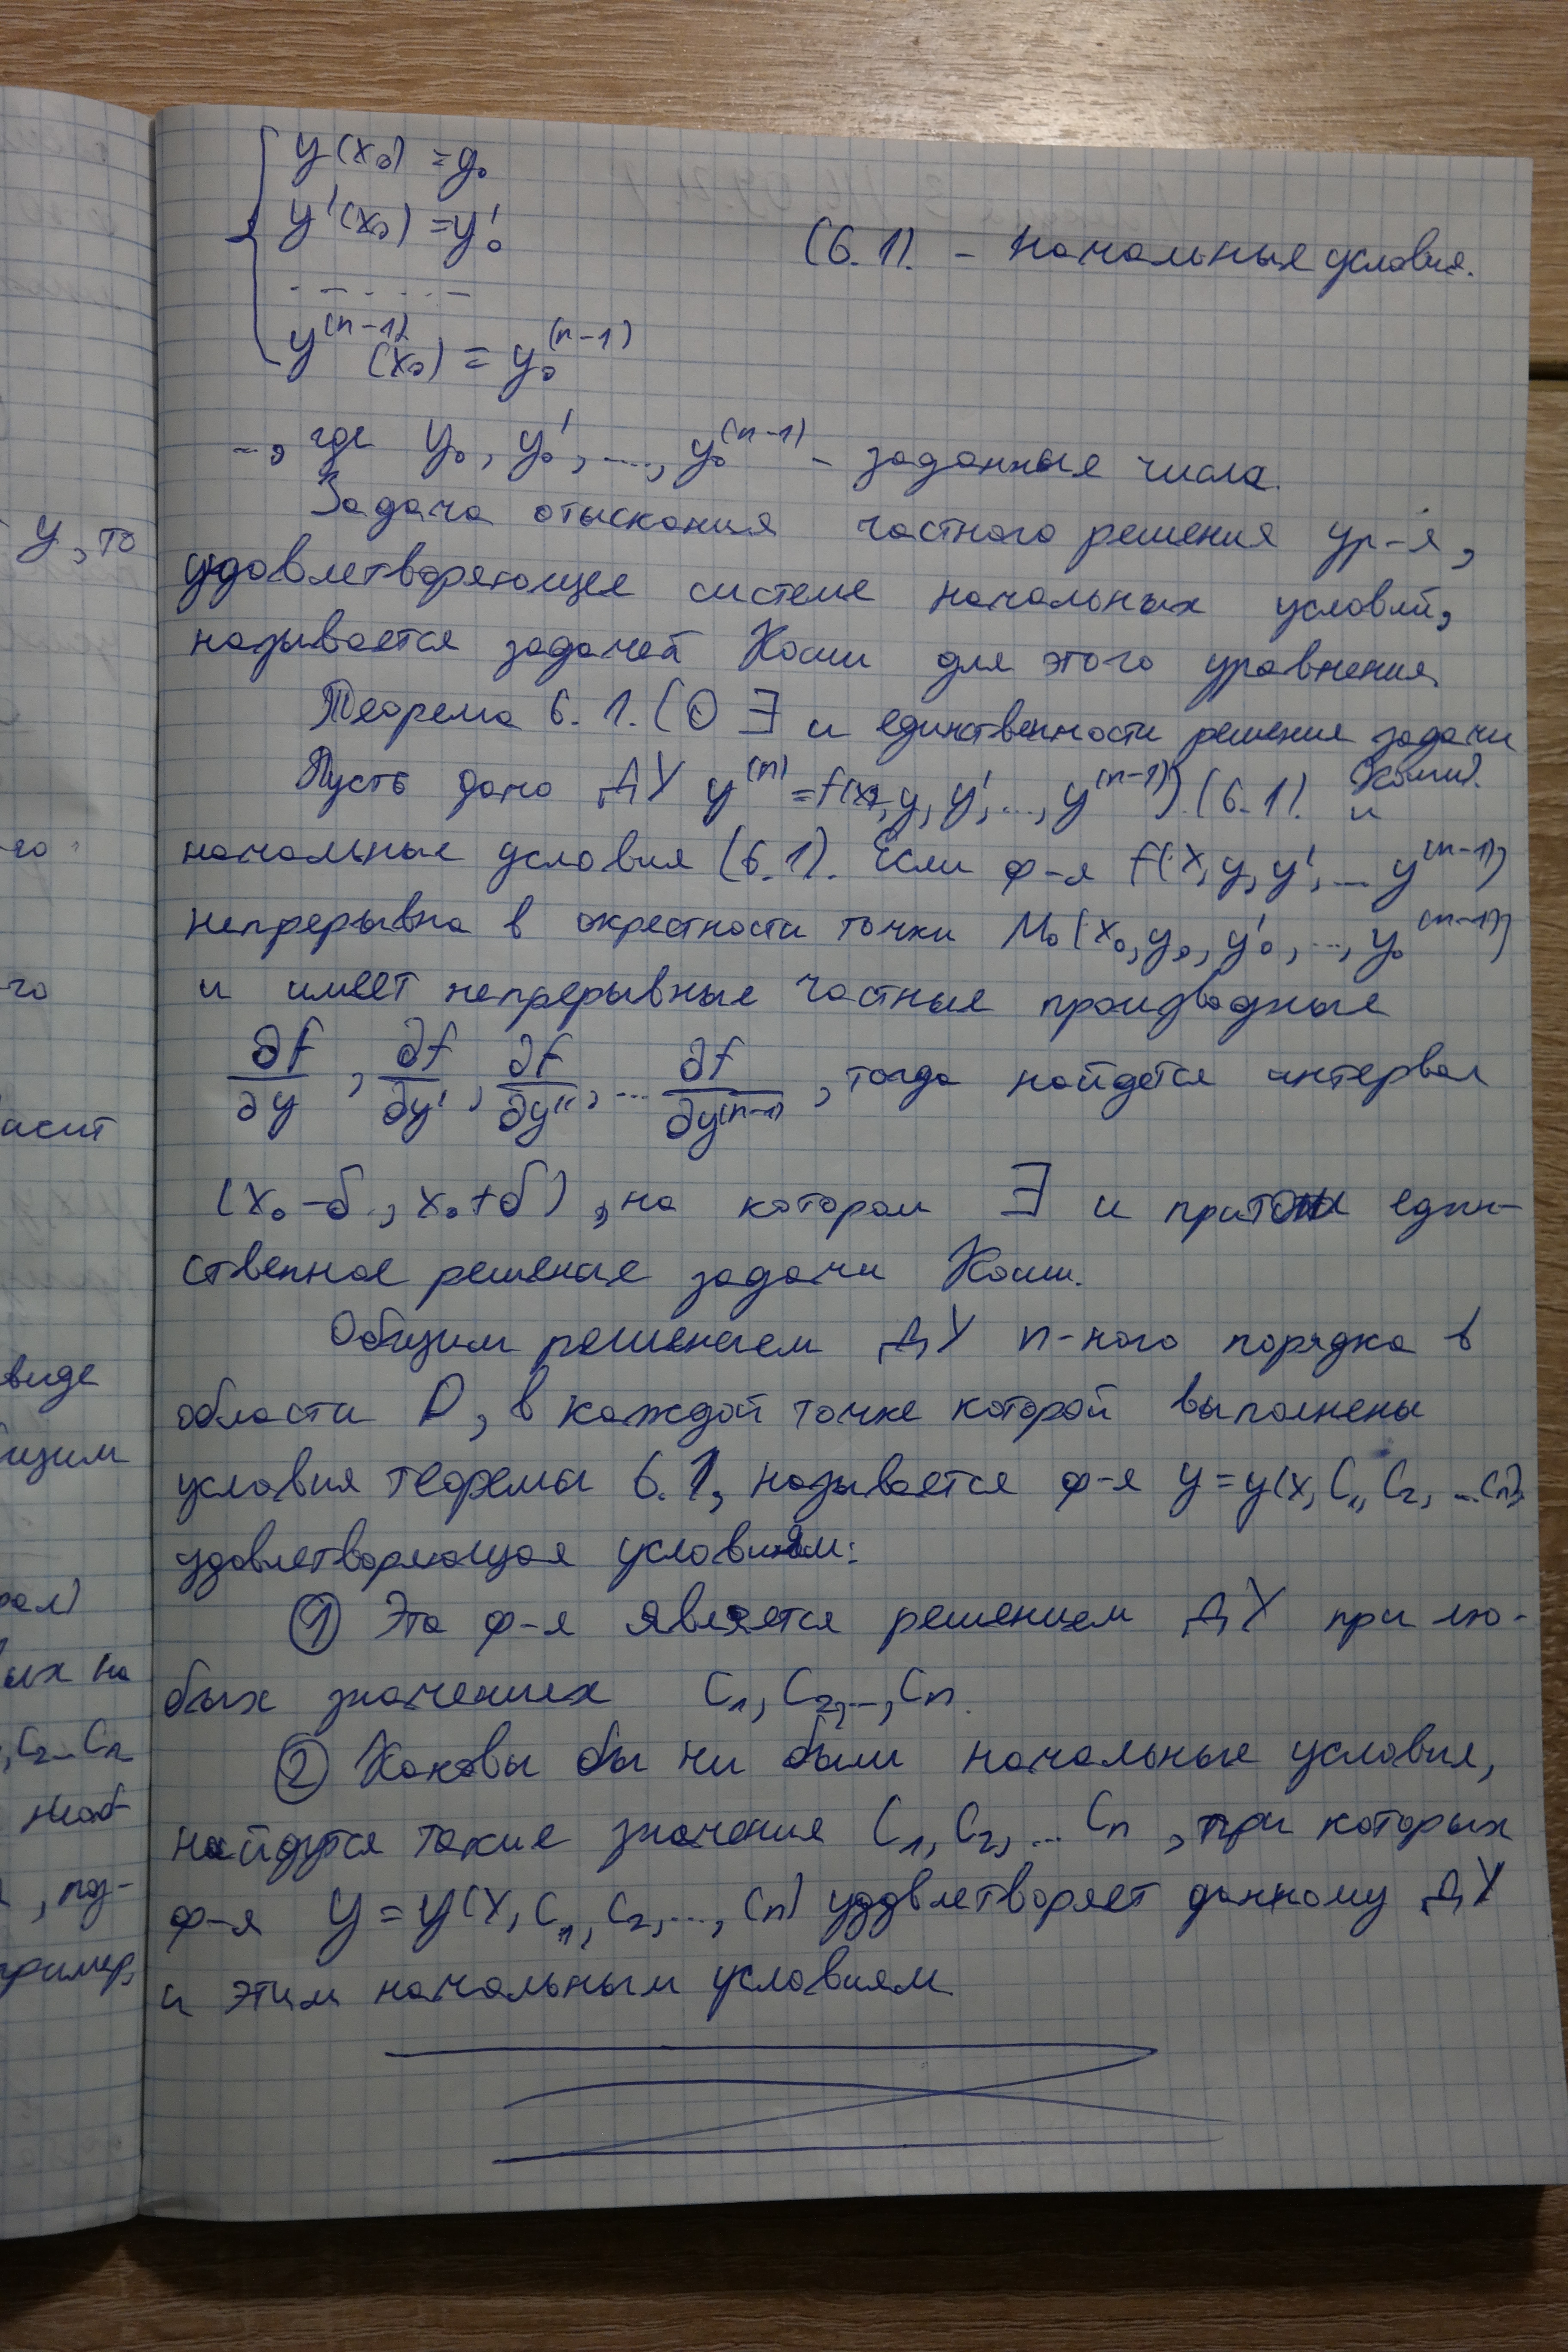 y(x₀) = y₀
y'(x₀) = y₀'
(6.1). - начальные условия.
. - . . . . -
y⁽ⁿ⁻¹⁾(x₀) = y₀⁽ⁿ⁻¹⁾
-, где y₀, y₀', ..., y₀⁽ⁿ⁻¹⁾ - заданные числа.
Задача отыскания частного решения ур-я,
удовлетворяющее системе начальных условий,
называется задачей Коши для этого уравнения.
Теорема 6.1. (О ∃ и единственности решения задачи
Коши).
Пусть дано ДУ y⁽ⁿ⁾ = f(x, y, y', ..., y⁽ⁿ⁻¹⁾) (6.1). и
начальные условия (6.1). Если ф-я f(x, y, y', ... y⁽ⁿ⁻¹⁾)
непрерывна в окрестности точки M₀(x₀, y₀, y₀', ..., y₀⁽ⁿ⁻¹⁾)
и имеет непрерывные частные производные
∂f/∂y, ∂f/∂y', ∂f/∂y'', ... ∂f/∂y⁽ⁿ⁻¹⁾, тогда найдется интервал
(x₀-δ, x₀+δ), на котором ∃ и притом един-
ственное решение задачи Коши.
Общим решением ДУ n-ного порядка в
области D, в каждой точке которой выполнены
условия теоремы 6.1, называется ф-я y = y(x, C₁, C₂, ... Cn),
удовлетворяющая условиям:
① Эта ф-я является решением ДУ при лю-
бых значениях C₁, C₂, ..., Cn.
② Каковы бы ни были начальные условия,
найдутся такие значения C₁, C₂, ... Cn, при которых
ф-я y = y(x, C₁, C₂, ..., Cn) удовлетворяет данному ДУ
и этим начальным условиям.
y, то
-го
-го
виде
ых на
, C₂... Cn